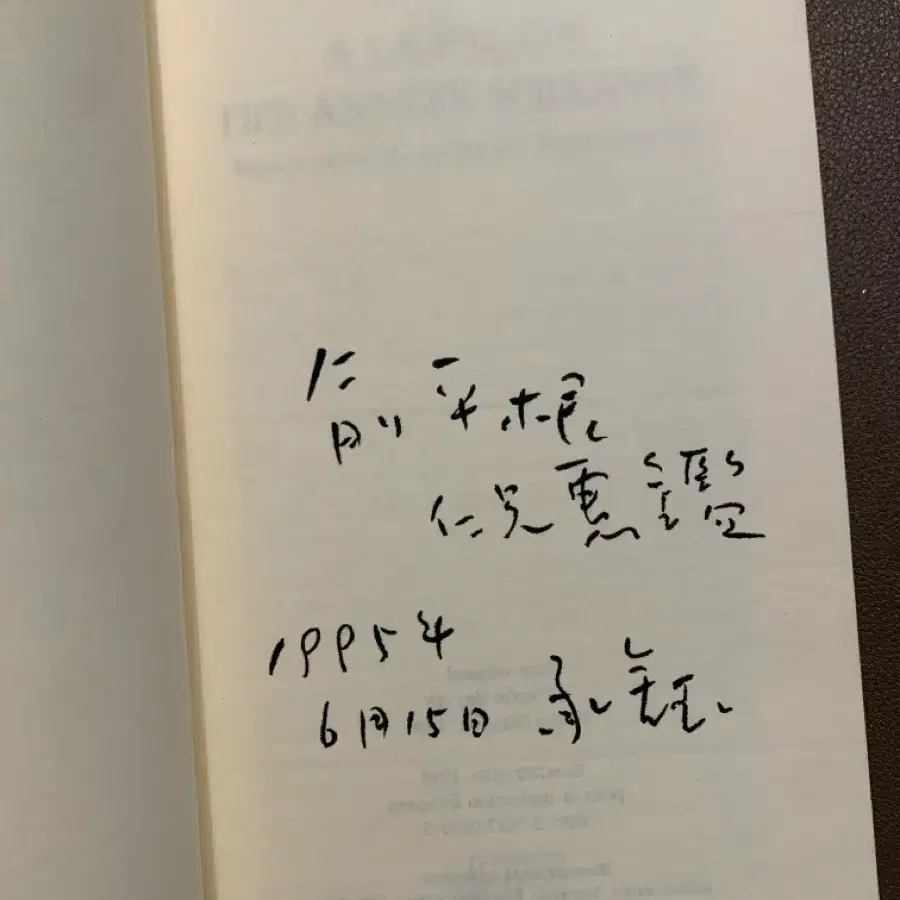 兪平根
仁兄惠鑑
1995年
6月15日 承